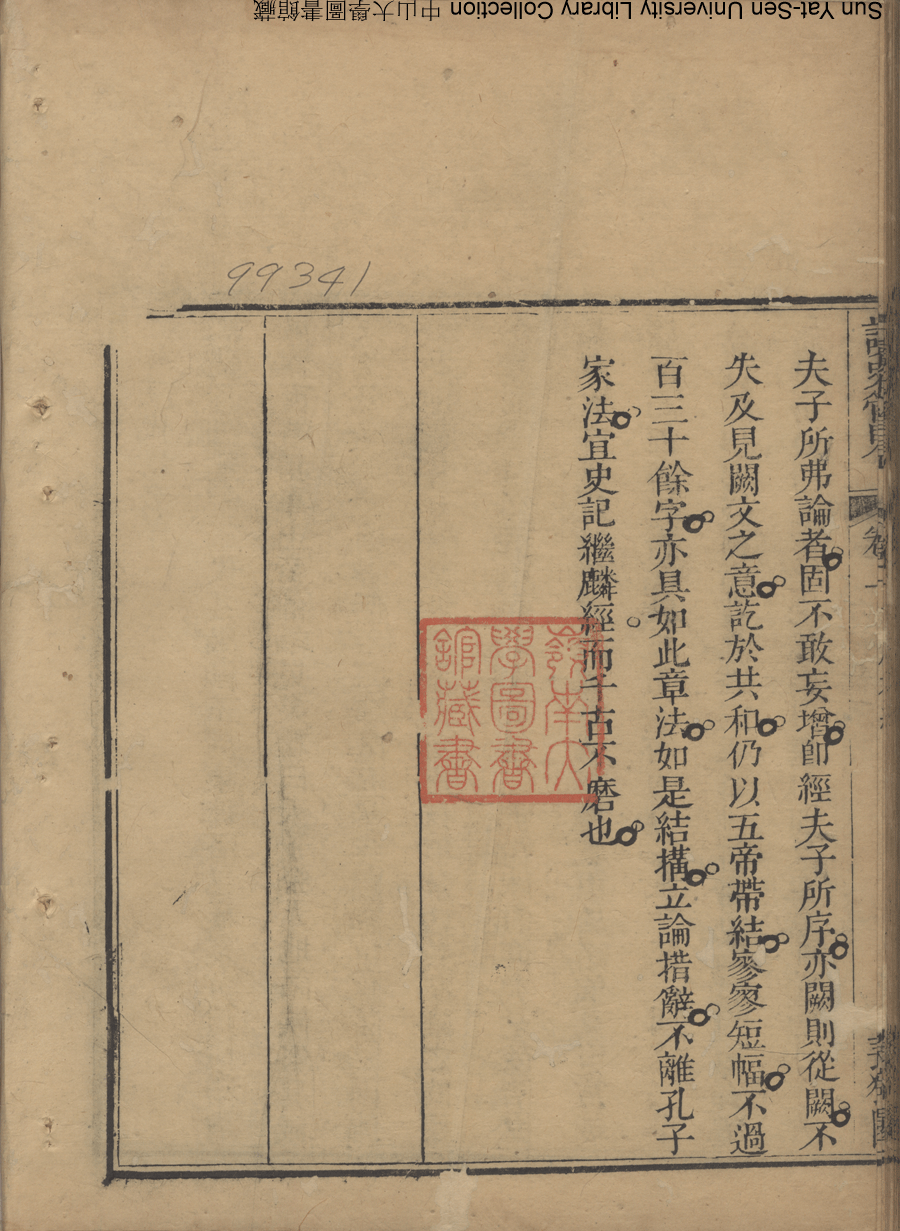 夫子所弗論者固不敢妄增卽經夫子所序亦闕則從闕不
失及見闕文之意訖於共和仍以五帝帶結寥寥短幅不過
百三十餘字亦具如此章法如是結搆立論措辭不離孔子
家法宜史記繼麟經而千古不磨也
嶺南大
學圖書
館藏書
99341
Sun Yat-Sen University Library Collection 中山大學圖書館藏